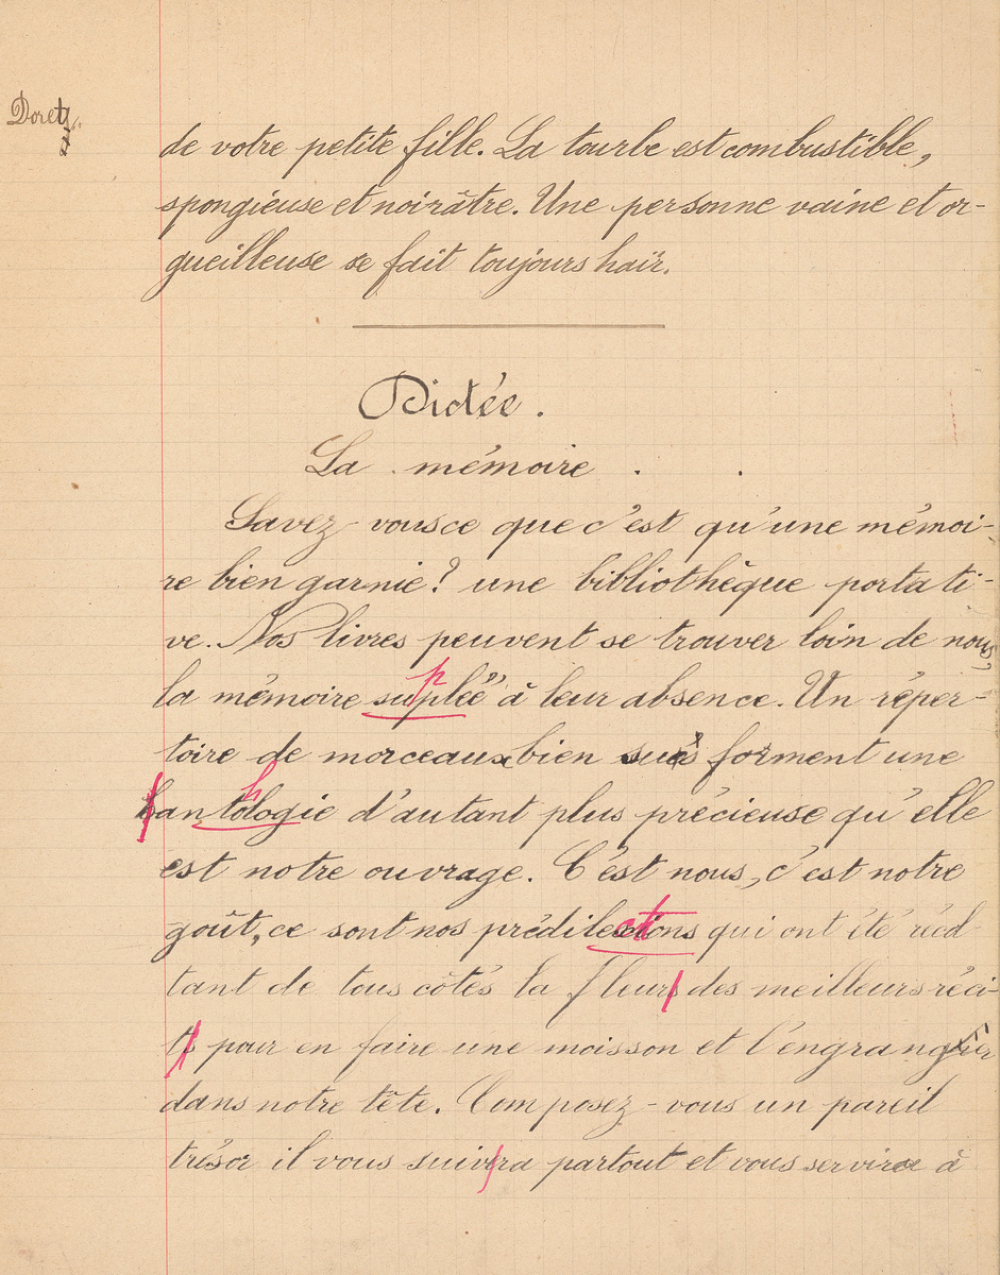 Doret
de votre petite fille. La tourbe est combustible,
spongieuse et noirâtre. Une personne vaine et or-
gueilleuse se fait toujours haïr.
Dictée.
La mémoire.
Savez-vous ce que c'est qu'une mémoi-
re bien garnie? une bibliothèque portati-
ve. Nos livres peuvent se trouver loin de nous,
la mémoire suplée à leur absence. Un réper-
toire de morceaux bien sués forment une
hantologie d'autant plus précieuse qu'elle
est notre ouvrage. C'est nous, c'est notre
goût, ce sont nos prédilections qui ont été
tant de tous côtés la fleurs des meilleurs réci-
ts pour en faire une moisson et l'engranger
dans notre tête. Composez-vous un pareil
trésor il vous suivra partout et vous servira à